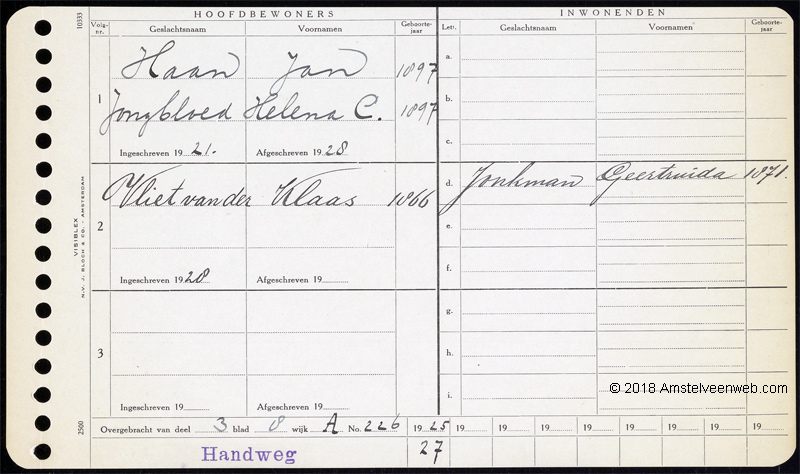 HOOFDBEWONERS
INWONENDEN
Volg-nr.
Geslachtsnaam
Voornamen
Geboorte-jaar
Letr.
Geslachtsnaam
Voornamen
Geboorte-jaar
1
Haan Jan 1897
Jongbloed Helena C. 1897
Ingeschreven 1921. Afgeschreven 1928
a.
b.
c.
2
Vliet van der Klaas 1866
Ingeschreven 1928 Afgeschreven 19
d. Jonkman Geertruida 1871.
e.
f.
3
Ingeschreven 19 Afgeschreven 19
g.
h.
i.
Overgebracht van deel 3 blad 8 wijk A No. 226 1925 19 19 19 19 19 19 19 19
Handweg 27
10333
VISIBLEX
N.V. J. BLOCH & CO. - AMSTERDAM
2500
© 2018 Amstelveenweb.com